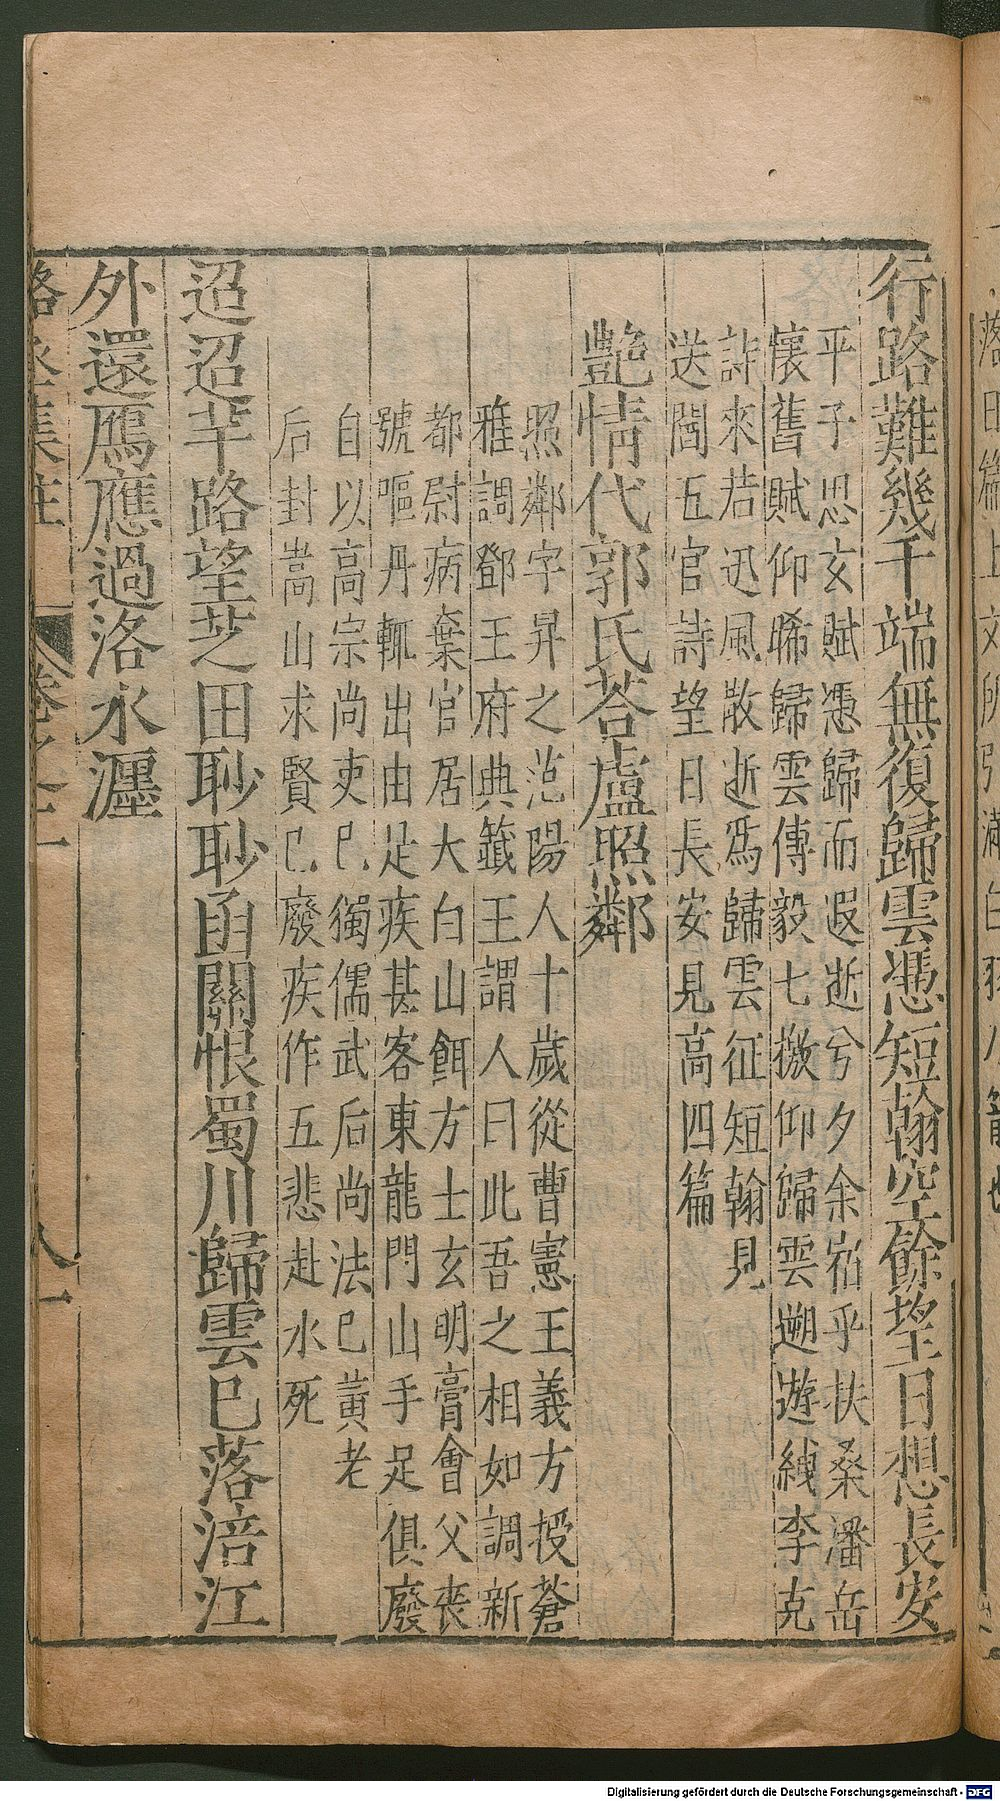 行路難幾千端無復歸雲憑短翰空餘望日想長安
平子思玄賦憑歸而遐逝兮夕余宿乎扶桑潘岳
懷舊賦仰睎歸雲傳毅七激仰歸雲遡遊綫李克
詩來若迅風散逝爲歸雲征短翰見
送閭五官詩望日長安見高四篇
艷情代郭氏荅盧照鄰
照鄰字昇之范陽人十歲從曹憲王義方授蒼
雅調鄧王府典籤王謂人曰此吾之相如調新
都尉病棄官居大白山餌方士玄明膏會父喪
號嘔丹輒出由是疾甚客東龍門山手足俱廢
自以高宗尚吏己獨儒武后尚法己黃老
后封嵩山求賢己廢疾作五悲赴水死
迢迢芊路望芝田眇眇函關恨蜀川歸雲已落涪江
外還鴈應過洛水瀍
駱丞集註
卷之二
八一
落田篇上文所引滿白羽八箭也
Digitalisierung gefördert durch die Deutsche Forschungsgemeinschaft - DFG